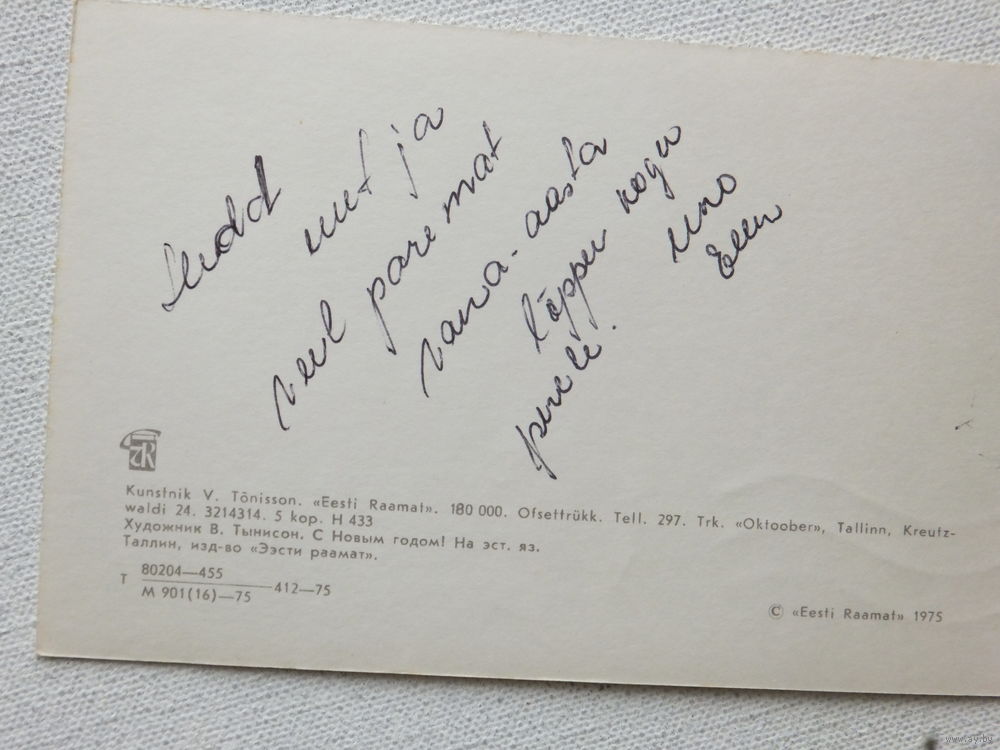 Head uut ja
veel paremat
vana-aasta
lõppu kogu
perele.
Uno
ER
Kunstnik V. Tõnisson. «Eesti Raamat». 180 000. Ofsettrükk. Tell. 297. Trk. «Oktoober», Tallinn, Kreutz-
waldi 24. 3214314. 5 kop. H 433
Художник В. Тынисон. С Новым годом! На эст. яз.
Таллин, изд-во «Ээсти раамат».
Т 80204—455
М 901(16)—75 412—75
© «Eesti Raamat» 1975
www.ay.by